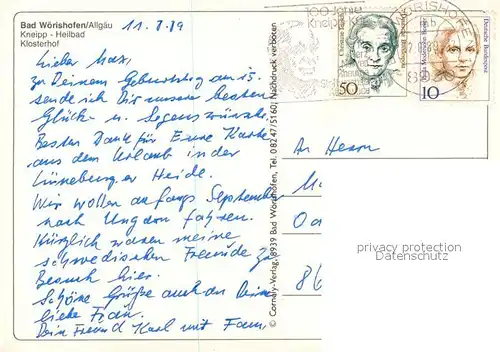 Bad Wörishofen/Allgäu
Kneipp - Heilbad
Klosterhof
11.8.89
Lieber Max,
zu Deinem Geburtstag am 15.
sende ich Dir unsere besten
Glück- u. Segenswünsche.
Besten Dank für Eure Karte
aus dem Urlaub in der
Lüneburger Heide.
Wir wollen anfangs September
nach Ungarn fahren.
Kürzlich waren meine
schwedischen Freunde zu
Besuch hier.
Schöne Grüße auch an Deine
liebe Frau.
Dein Freund Karl mit Fam.
© Cornely-Verlag, 8939 Bad Wörishofen, Tel. 08247/5160, Nachdruck verboten
100 Jahre
Kneipp
WÖRISHOFEN
50
10
Deutsche Bundespost
An Herrn
86
privacy protection
Datenschutz